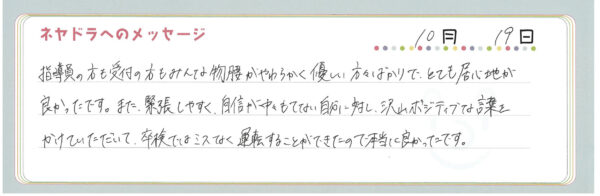 ネヤドラへのメッセージ
10月 19日
指導員の方も受付の方もみんな物腰がやわらかく優しい方々ばかりで、とても居心地が
良かったです。また、緊張しやすく、自信が中々もてない自分に対し、沢山ポジティブな言葉を
かけていただいて、卒検ではミスなく運転することができたので本当に良かったです。